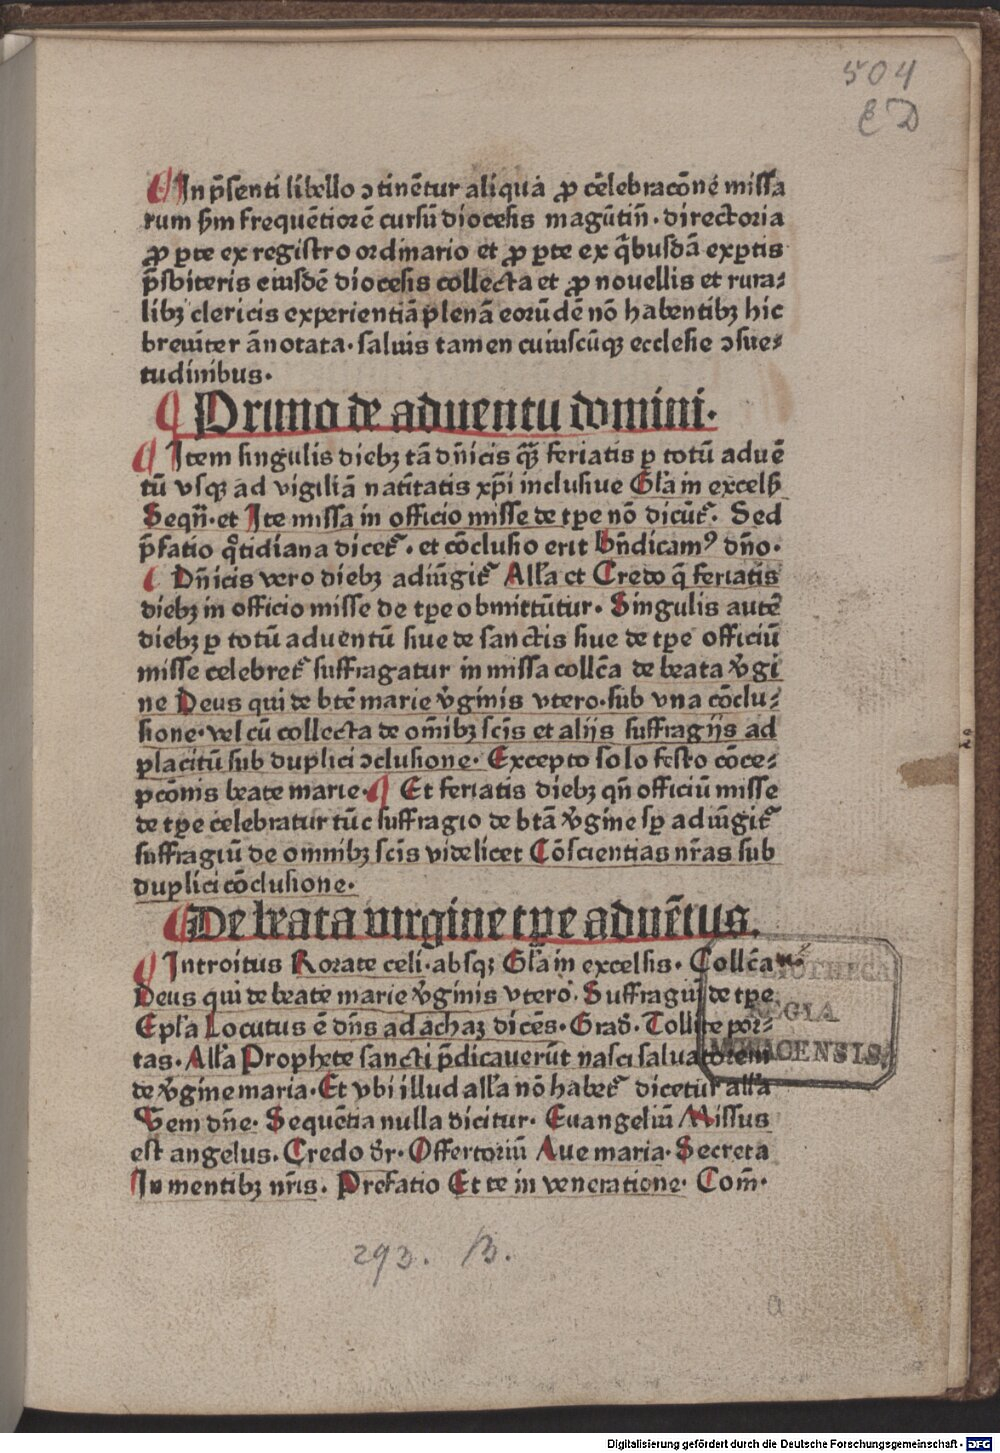 504
ED
¶ In p̃senti libello ɔtinẽtur aliqua ꝓ cẽlebracõne missa
rum ẜm frequẽtiorẽ cursũ diocesis magũtiñ. directoria
ꝓ ꝑte ex registro ordinario et ꝓ ꝑte ex q̃busdã exꝑtis
p̃sbiteris eiusdẽ diocesis collecta et ꝓ nouellis et rura⸗
libꝫ clericis experientiã plenã eorũdẽ nõ habentibꝫ hic
breuiter ãnotata. saluis tamen cuiuscũqꝫ ecclesie ɔsue⸗
tudinibus.
¶ Primo de aduentu domini.
¶ Item singulis diebꝫ tã dñicis qꝫ̃ feriatis ꝑ totũ aduẽ
tũ vsqꝫ ad vigiliã natĩtatis xp̃i inclusiue Gl̃a in excelẜ
Seqñ. et Ite missa in officio misse de tꝑe nõ dicũt᷑. Sed
p̃fatio q̃tidiana dicet᷑. et cõclusio erit Bñdicamꝰ dño.
¶ Dñicis vero diebꝫ adiũgit᷑ All̃a et Credo q̃ feriatis
diebꝫ in officio misse de tꝑe obmittũtur. Singulis autẽ
diebꝫ ꝑ totũ aduentũ siue de sanctis siue de tꝑe officiũ
misse celebret᷑ suffragatur in missa collc̃a de beata ṽgi
ne Deus qui de btẽ marie ṽginis vtero. sub vna cõclu⸗
sione. vel cũ collecta de om̃ibꝫ scĩs et alijs suffragijs ad
placitũ sub duplici ɔclusione. Excepto solo festo cõce⸗
pcõnis beate marie. ¶ Et feriatis diebꝫ qñ officiũ misse
de tꝑe celebratur tũc suffragio de btã ṽgine sꝑ adiũgit᷑
suffragiũ de omnibꝫ scĩs videlicet Cõscientias nr̃as sub
duplici cõclusione.
¶ De beata virgine tꝑe aduẽtus.
¶ Introitus Rorate celi. absqꝫ Gl̃a in excelsis. Collc̃a
Deus qui de beate marie ṽginis vtero. Suffragiũ de tꝑe
Epl̃a Locutus ẽ dñs ad achaꝫ dicẽs. Grad̃. Tollite por⸗
tas. All̃a Prophete sancti p̃dicauerũt nasci saluatorem
de ṽgine maria. Et vbi illud all̃a nõ habet᷑ dicetur all̃a
Ṽem dñe. Sequẽtia nulla dicitur. Euangeliũ Missus
est angelus. Credo dr̃. Offertoriũ Aue maria. Secreta
In mentibꝫ nr̃is. Prefatio Et te in veneratione. Com̃.
BIBLIOTHECA
REGIA
MONACENSIS.
293. B.
a
Digitalisierung gefördert durch die Deutsche Forschungsgemeinschaft - DFG